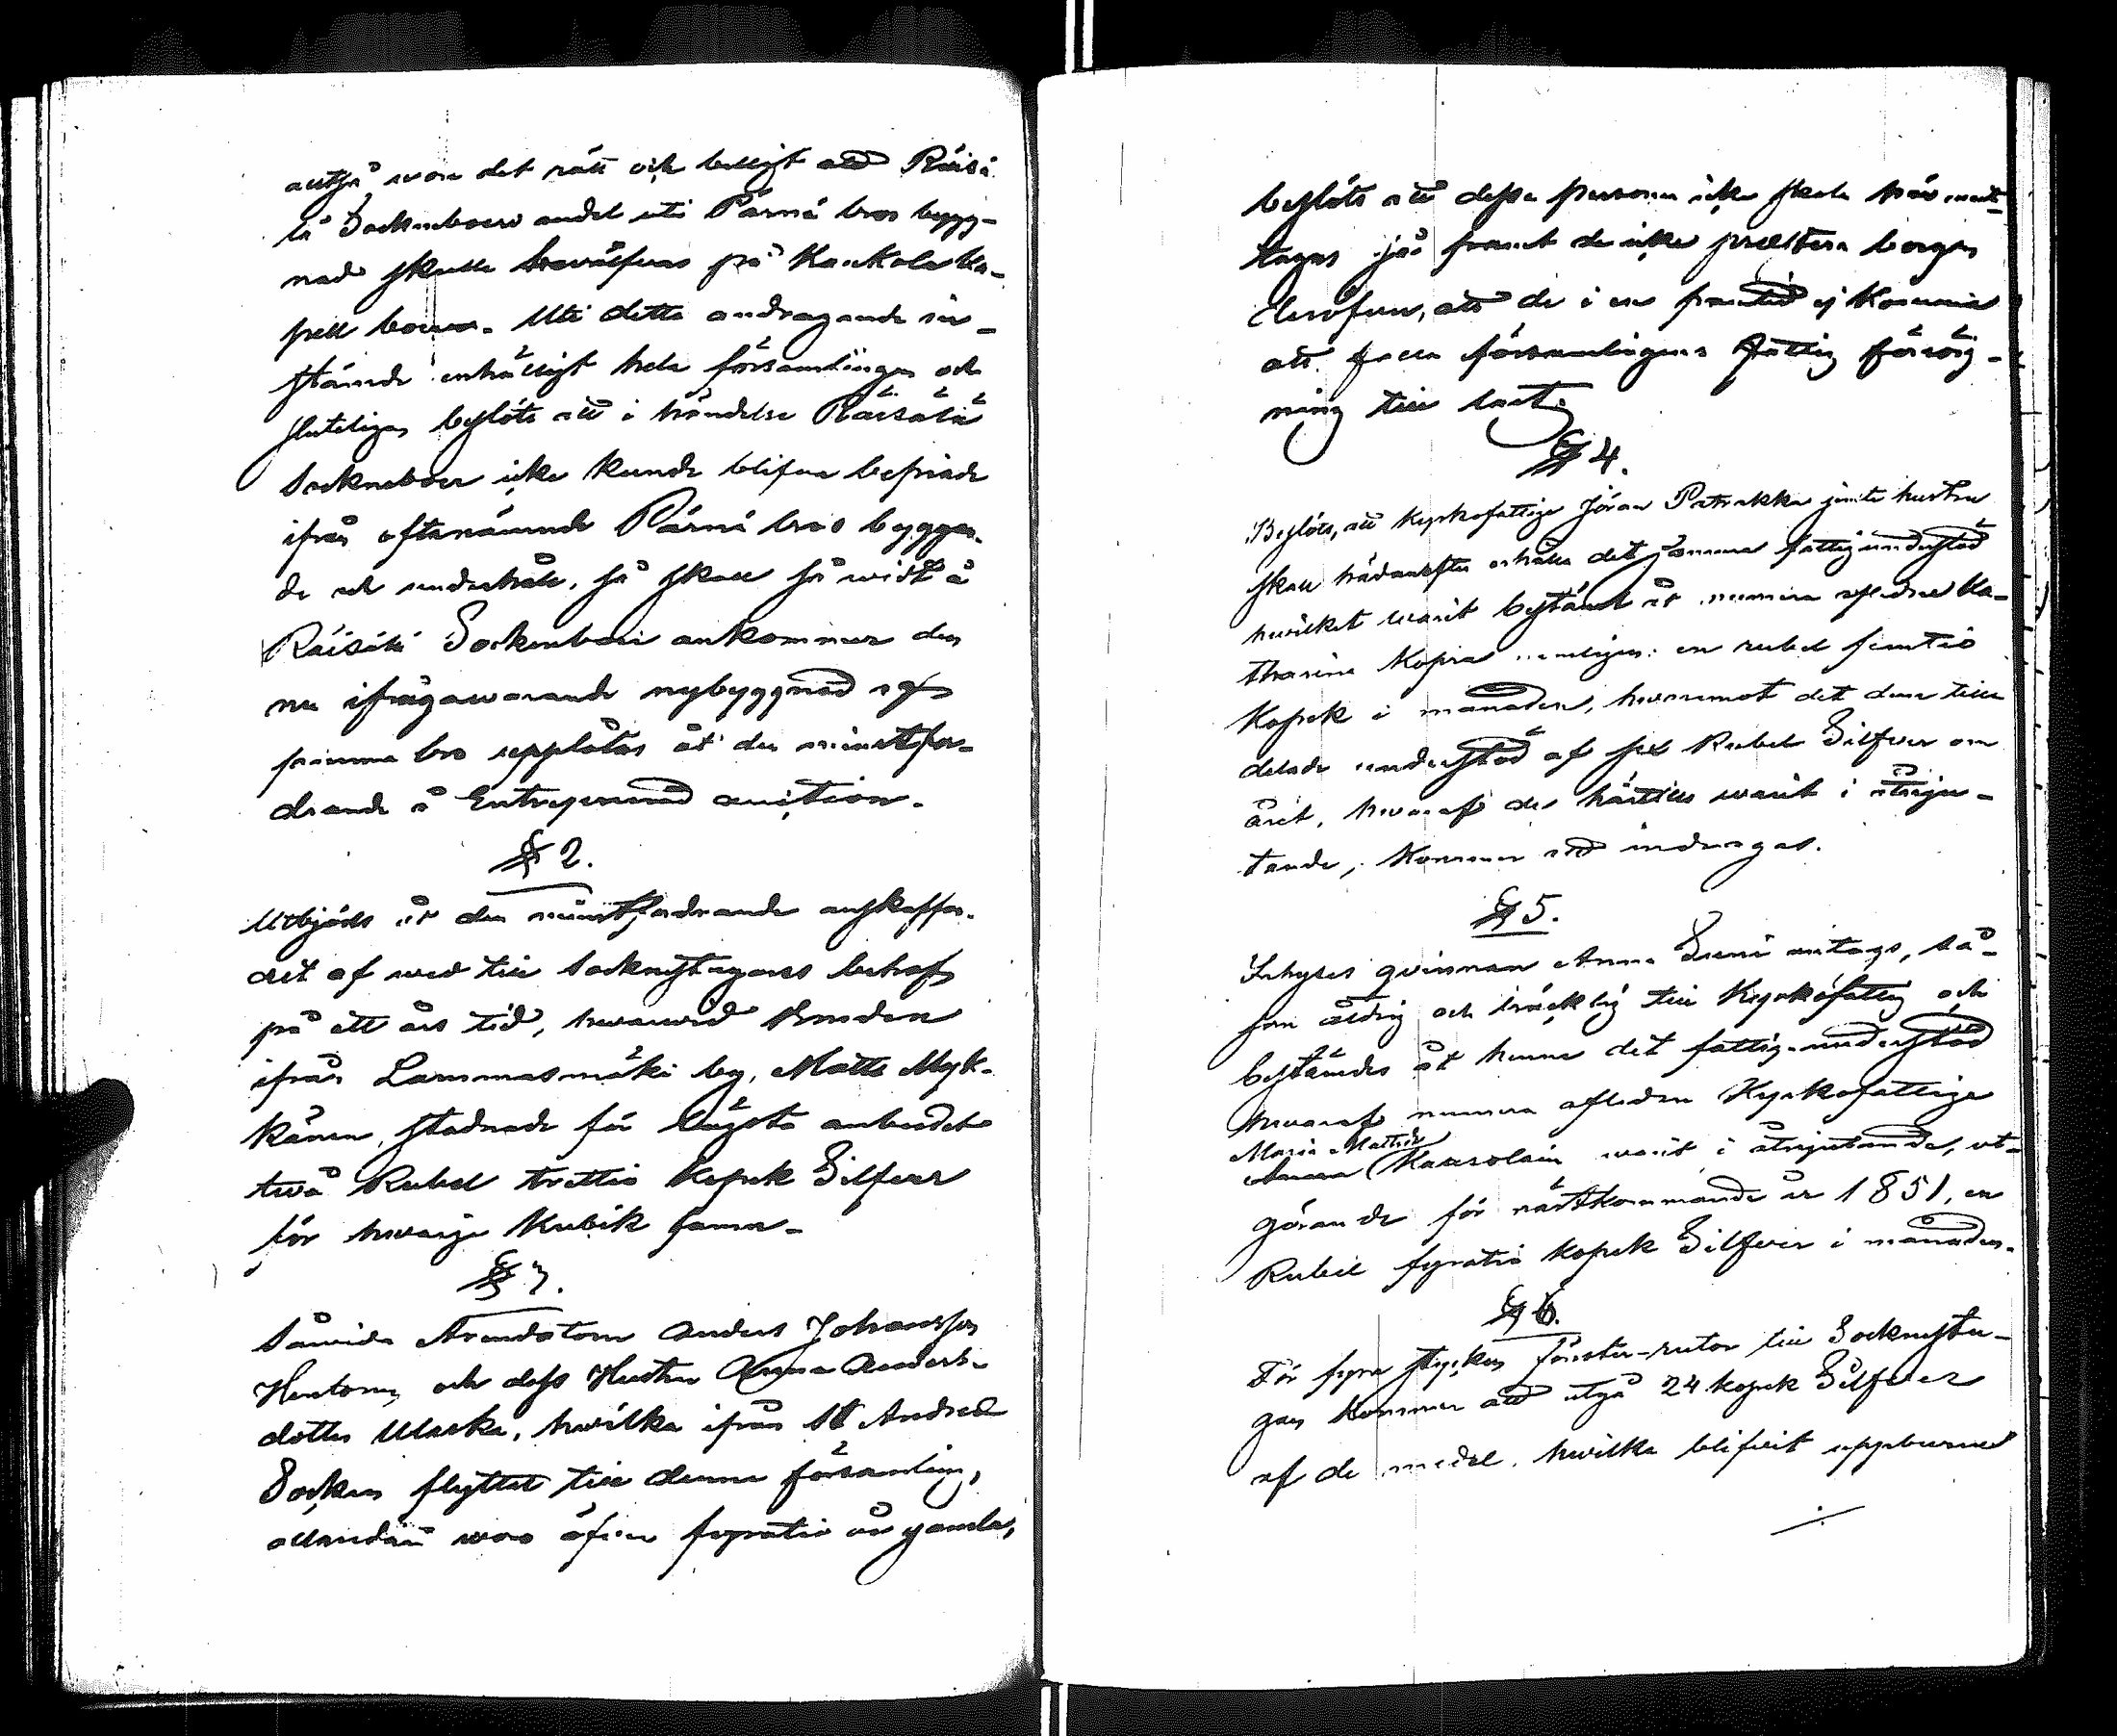 altså vore det rätt och billigt att Räisä-
lä Sockneboers andel uti Pärnä bros bygg-
nad skulle hvälfvas på Kaukola Ka-
pell boerne. Uti detta andragande in-
stämde enhälligt hela församlingen och
sluteligen beslöts att i händelse Räisälä
Sockneboer icke kunde blifva befriade
ifrån oftanämnde Pärnä bros byggan-
de och underhåll, så skall så widt å
Räisälä Sockenboer ankommer den
nu ifrågawarande nybyggnad af
samma bro upplåtas åt den minstfor-
drande å Entreprenad auction.
§ 2.
Utbjöds åt den minstfordrande anskaffan-
det af wed till Socknestugans behof
på ett års tid, hvarwid Bonden
ifrån Lammasmäki by, Matts Myk-
känen, stadnade för lägsta anbudet
två Rubel trettio Kopek Silfver
för hwarje Kubik famn.
§ 3.
Såwida Arendatorn Anders Johansson
Hentonen och dess Hustru Anna Anders-
dotter Ulaska, hwilka ifrån St Andreæ
Socken flyttat till denna församling,
allaredan woro öfver fyratio år gamla,
beslöts att dessa personer icke skola här emot-
tagas så framt de icke præstera borgen
deröfver, att de i en framtid ej komma
att falla församlingens fattig försörj-
ning till last.
§ 4.
Beslöts, att Kyrkofattige Jöran Patrakka jemte hustru
skall hädanefter erhålla det samma fattigunderstöd
hwilket warit bestämdt åt numera aflidne Ka-
tharina Kopra nemligen: en rubel femtio
Kopek i månaden, hwaremot det dem till-
delade understöd af sex Rubel Silfver om
året, hwaraf de härtills warit i åtnju-
tande, kommer att indragas.
§ 5.
Inhyses qvinnan Anna Suni antogs, så-
som ålderig och bräcklig till Kyrkofattig och
bestämdes åt henne det fattig-understöd
hwaraf numera aflidne Kyrkofattige
Maria Mattsdr
Anna Kaasolain warit i åtnjutande, ut-
görande för nästkommande år 1851, en
Rubel fyratio Kopek Silfver i månaden.
§ 6.
För fyra stycken fönster-rutor till Socknestu-
gan kommer att utgå 24 kopek Silfver
af de medel, hwilka blifvit uppburne